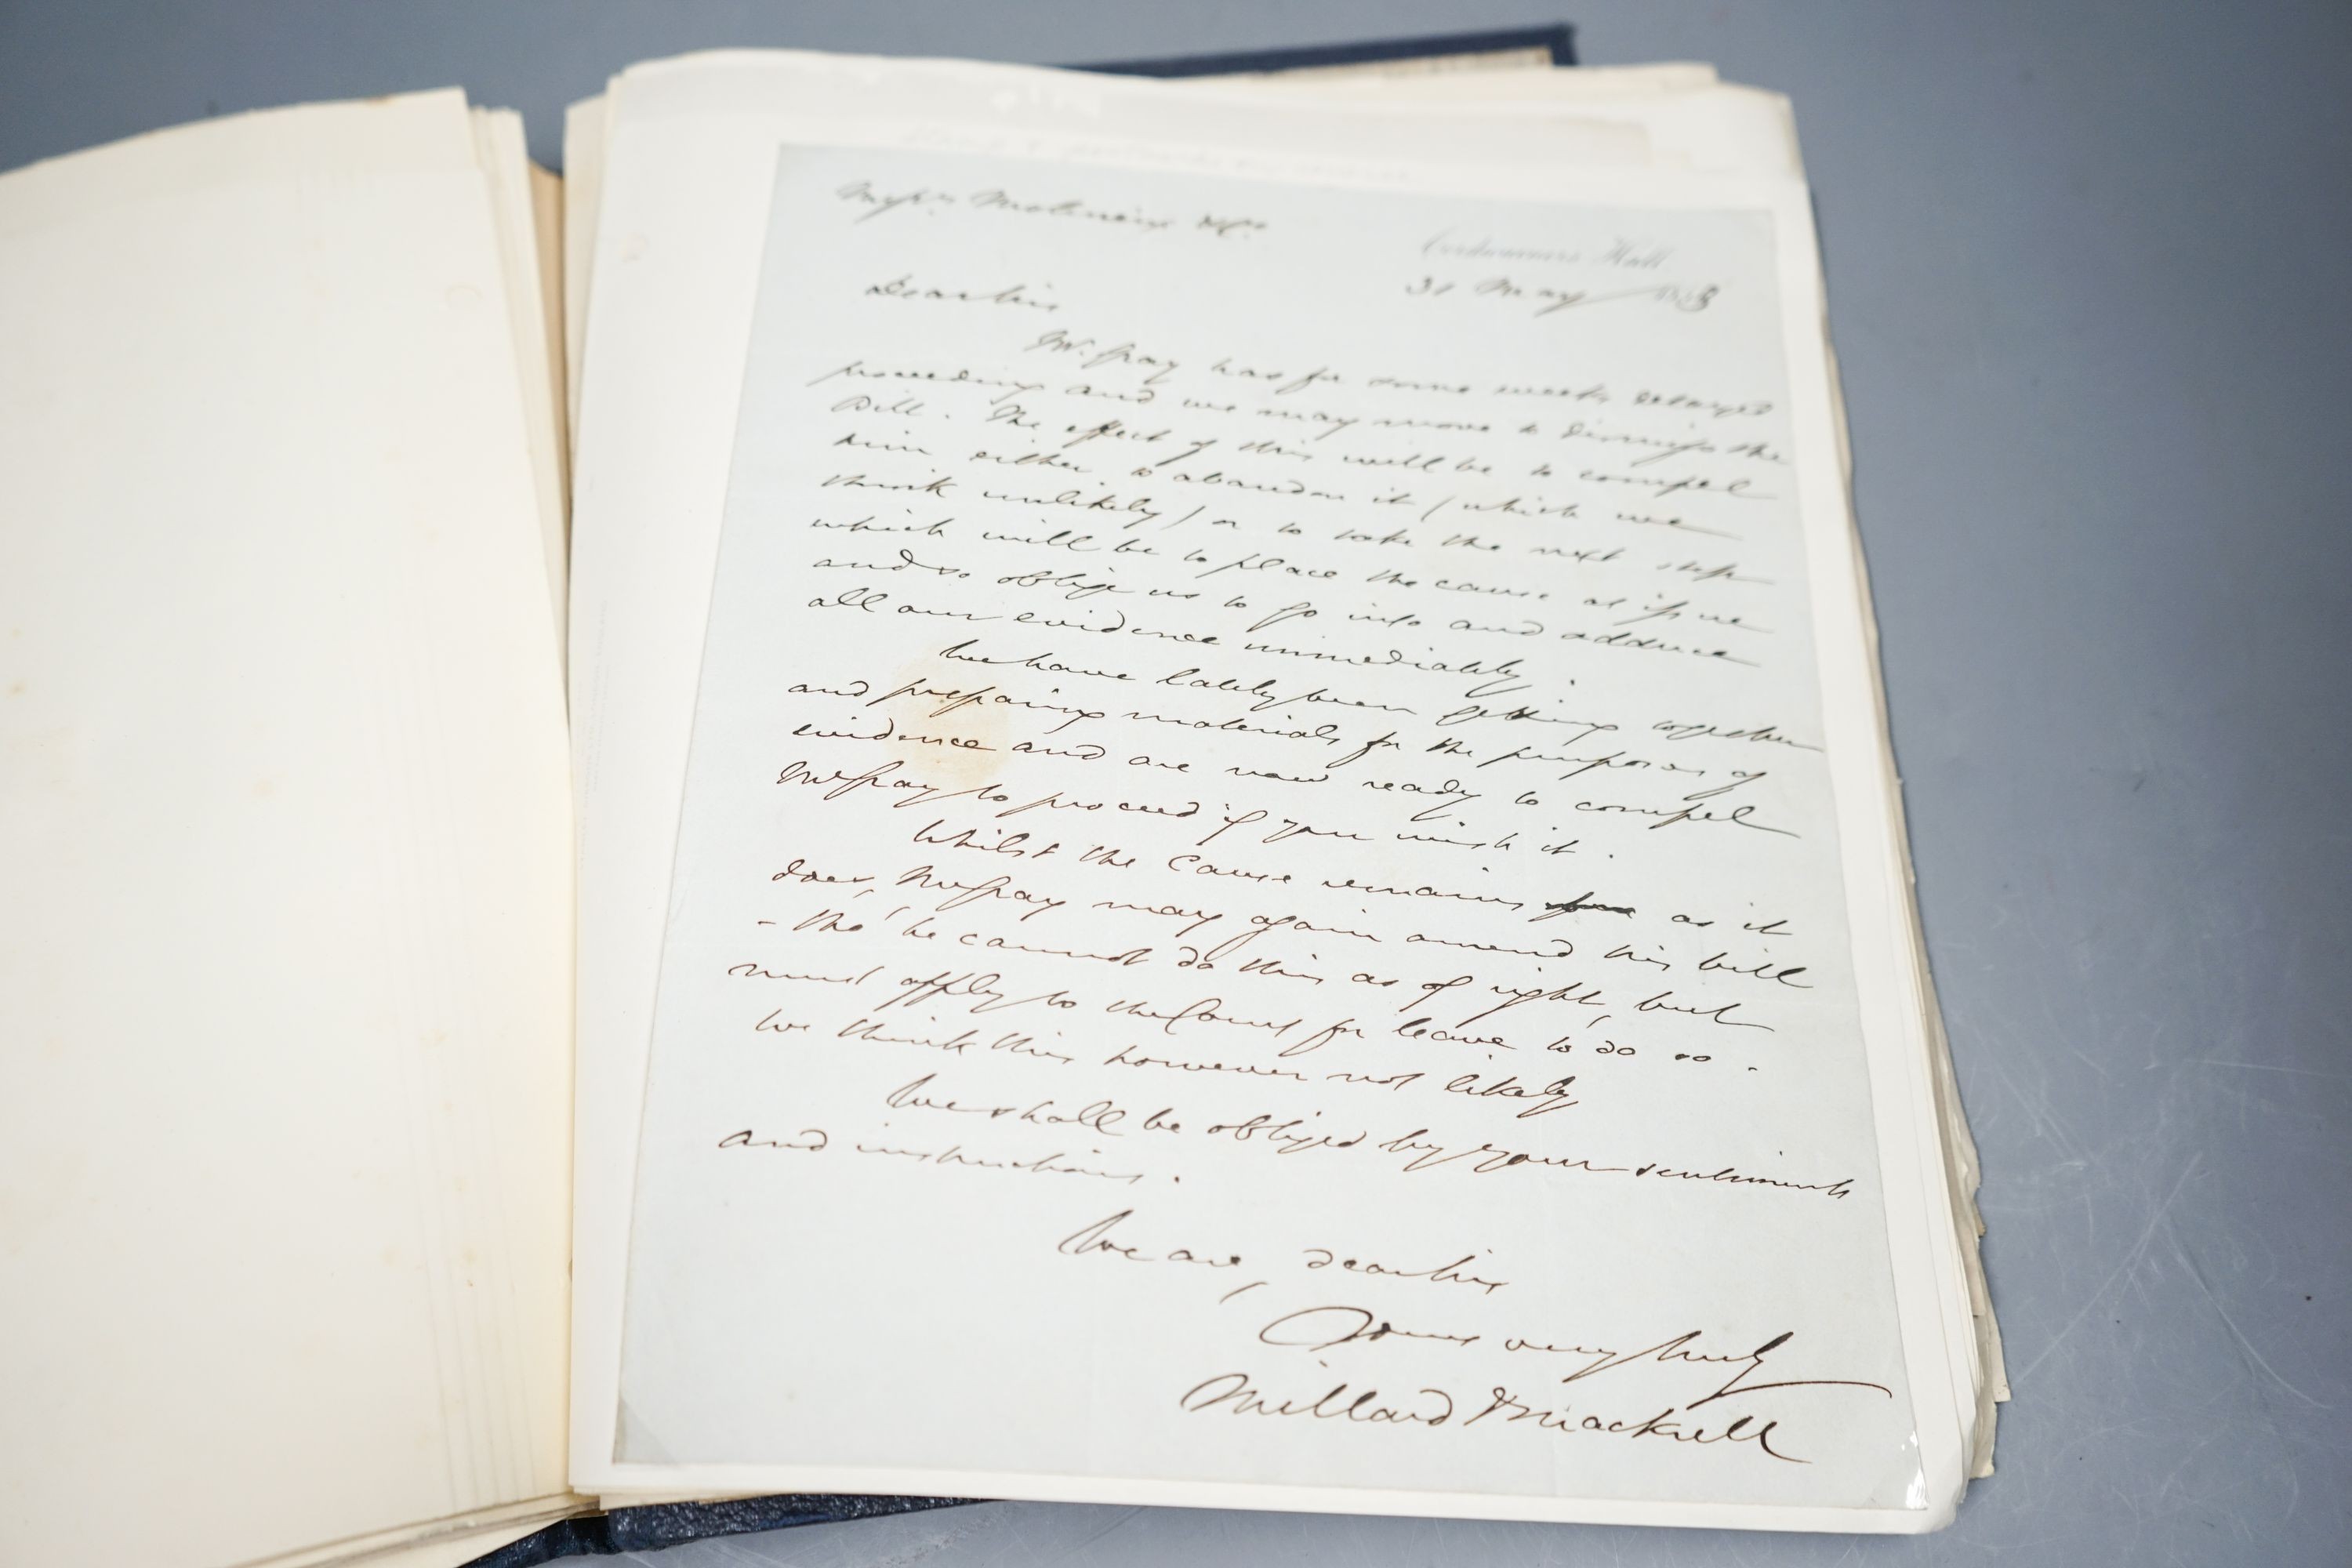 Messrs Molineux & Co
Cordwainers Hall
31 May
Dear Sir
Mr. Spay has for some weeks delayed
proceeding and we may move to dismiss the
Bill. The effect of this will be to compel
him either to abandon it (which we
think unlikely) or to take the next step
which will be to place the cause at issue
and so oblige us to go into and adduce
all our evidence immediately.
We have lately been getting together
and preparing materials for the purposes of
evidence and are now ready to compel
Mr Spay to proceed if you wish it.
Whilst the Cause remains as it
does, Mr Spay may again amend his bill
- tho' he cannot do this as of right, but
must apply to the Court for leave to do so.
We think this however not likely
We shall be obliged by your sentiments
and instructions.
We are, dear Sir
Yours very truly
Millard & Mackrell